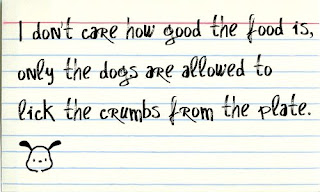 I don't care how good the food is,
only the dogs are allowed to
lick the crumbs from the plate.